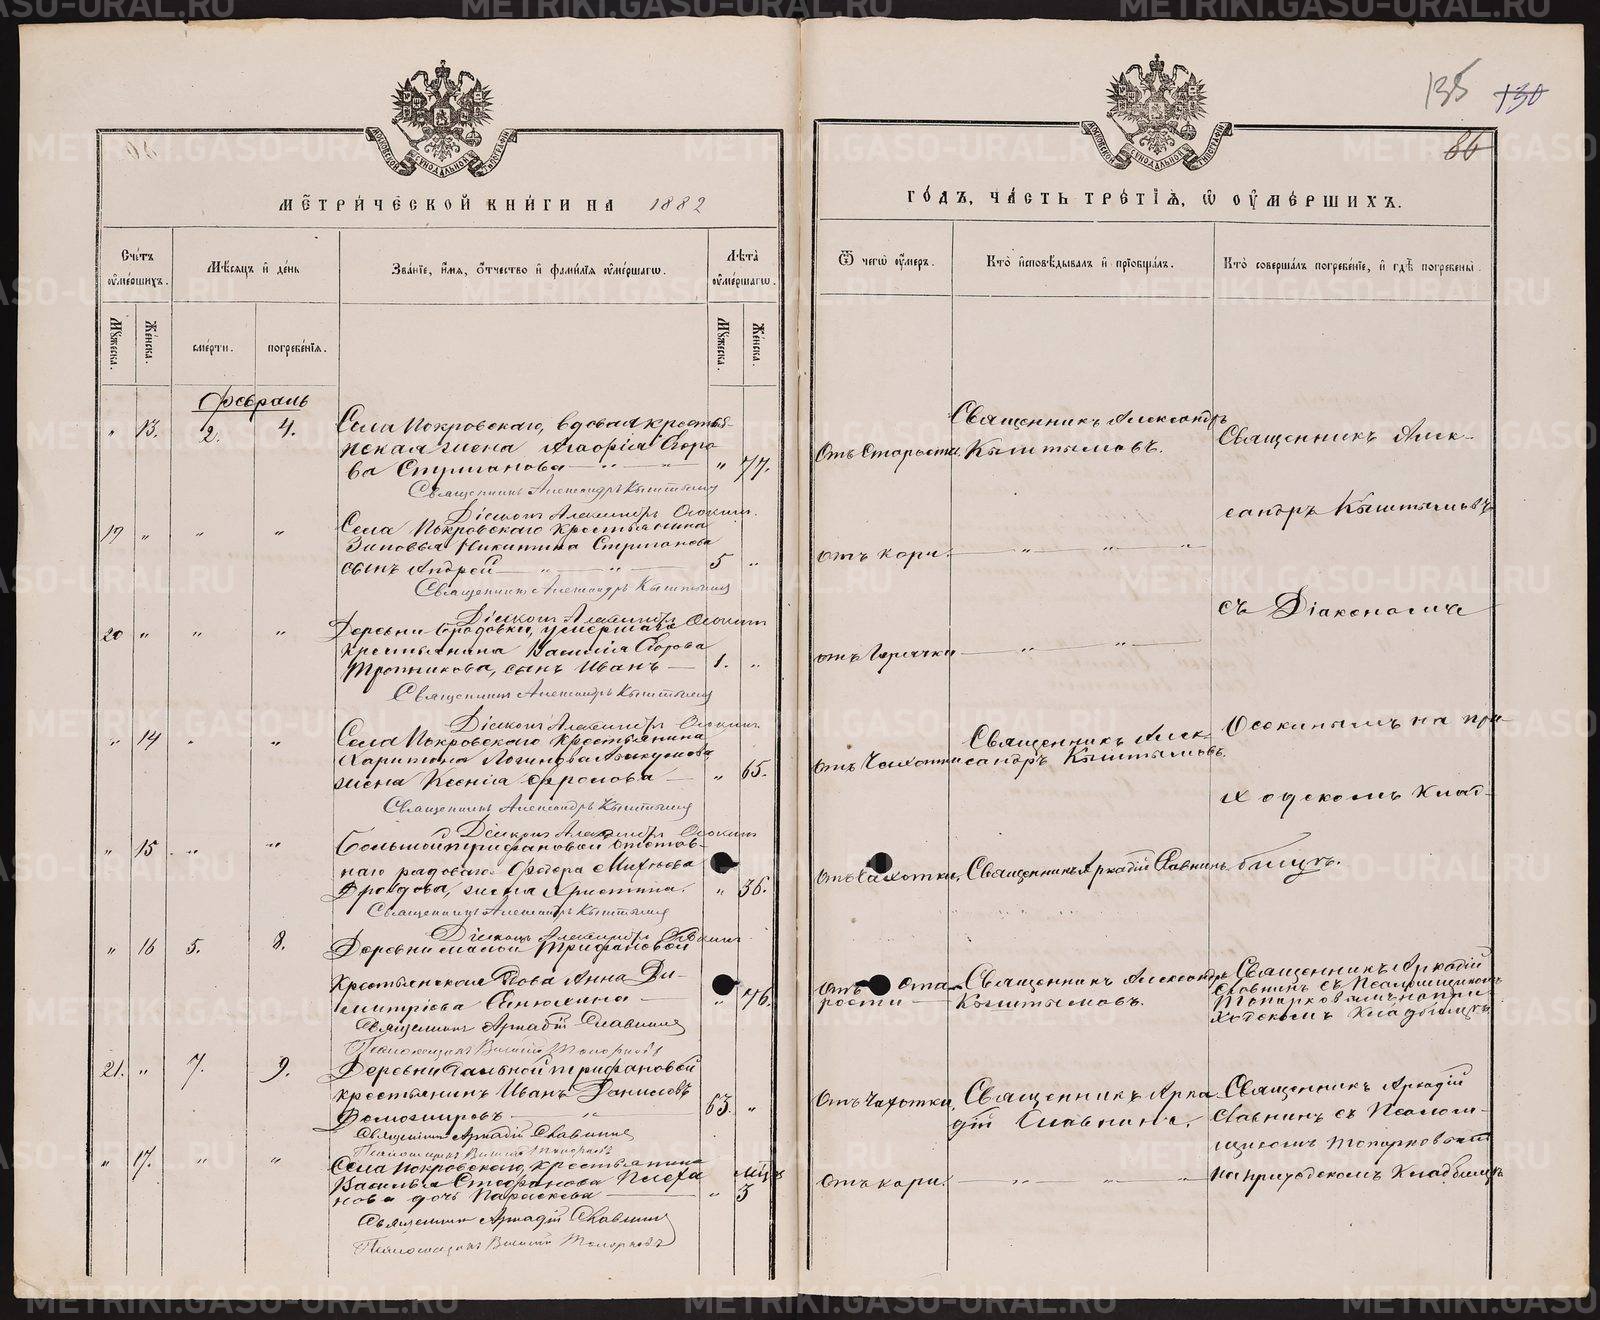 METRIKI.GASO-URAL.RU
135 130
86
МЕТРИЧЕСКОЙ КНИГИ НА 1882
ГОДЪ, ЧАСТЬ ТРЕТІѦ, Ѡ ОУМЕРШИХЪ.
Счетъ оумершихъ.
Мѣсяцъ и день
Званіе, имя, отчество и фамилія оумершагѡ.
Лѣта оумершагѡ.
Ѿ чегѡ оумеръ.
Кто исповѣдывалъ и пріобщалъ.
Кто совершалъ погребеніе, и гдѣ погребены.
Мужеска.
Женска.
смерти.
погребенія.
Мужеска.
Женска.
Февраль
" 13. 2. 4. Села Покровскаго, вдовая кресть-
янская жена Агафія Егоро
ва Стриганова " 77.
Священникъ Александръ Кыштымов
Діаконъ Александръ Осокинъ.
Отъ Старости.
Священникъ Александръ
Кыштымовъ.
19 " " " Села Покровскаго крестьянина
Зиновья Никитина Стриганова
сынъ Андрей 5 "
Священникъ Александръ Кыштымов
Діаконъ Александръ Осокинъ
отъ кори.
20 " " " Деревни Бродовки, умершаго
крестьянина Василія Егорова
сынъ Иванъ 1. "
Священникъ Александръ Кыштымов
Діаконъ Александръ Осокинъ
отъ Горячки
" 14 " " Села Покровскаго крестьянина
Харитона Логинова
жена Ксенія Фролова " 65.
Священникъ Александръ Кыштымов
Діаконъ Александръ Осокинъ
Отъ Чахотки
Священникъ Алек-
сандръ Кыштымовъ.
" 15 " " Большой Трифановой отстав-
наго рядоваго Федора Михѣева
Дроздова, жена Христина. " 36.
Священникъ Александръ Кыштымов
Діаконъ Александръ Осокинъ
Отъ Чахотки.
Священникъ Аркадій Славнинъ.
Священникъ Алек-
сандръ Кыштымовъ
съ Діакономъ
Осокинымъ на при-
ходскомъ клад-
бищѣ.
" 16 5. 8. Деревни Малой Трифановой
крестьянская вдова Анна Ди-
митріева " 76.
Священникъ Аркадій Славнинъ
Псаломщикъ Василій Топорковъ
Отъ Ста-
рости
Священникъ Александръ
Кыштымовъ.
Священникъ Аркадій
Славнинъ съ Псаломщикомъ
Топорковымъ на при
ходскомъ кладбищѣ
21. " 7. 9. Деревни Большой Трифановой
крестьянинъ Иванъ Даниловъ
Доможировъ 63. "
Священникъ Аркадій Славнинъ
Псаломщикъ Василій Топорковъ
Отъ Чахотки.
Священникъ Арка
дій Славнинъ.
" 17. " " Села Покровскаго, крестьянина
Василья Стефанова Плеха
нова дочь Параскева " 3
Священникъ Аркадій Славнинъ
Псаломщикъ Василій Топорковъ
Отъ кори.
Священникъ Аркадій
Славнинъ съ Псалом-
щикомъ Топорковымъ
на приходскомъ кладбищѣ